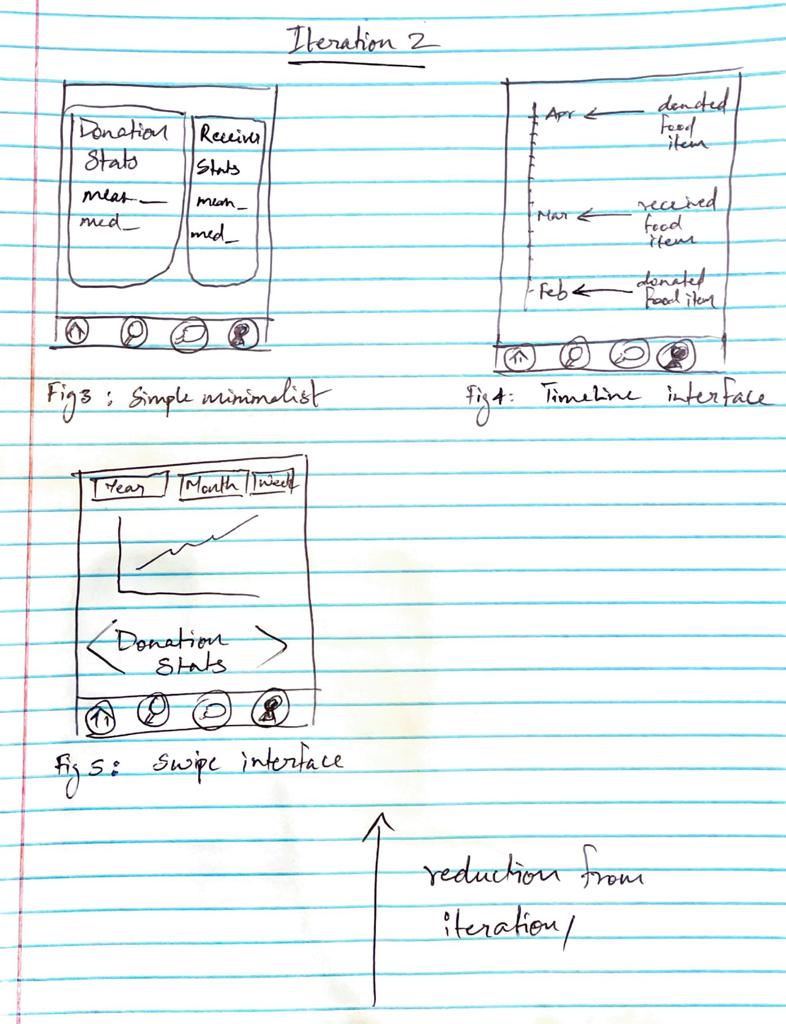 Iteration 2
Donation
Stats
mean __
med _
Receiver
Stats
mean _
med _
Fig 3 : Simple minimalist
Apr ← donated
food
item
Mar ← received
food
item
Feb ← donated
food item
Fig 4: Timeline interface
Year Month Week
< Donation >
Stats
Fig 5: Swipe interface
reduction from
iteration 1